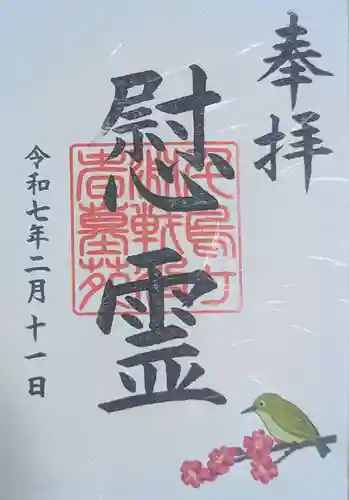 奉拝
慰霊
令和七年二月十一日